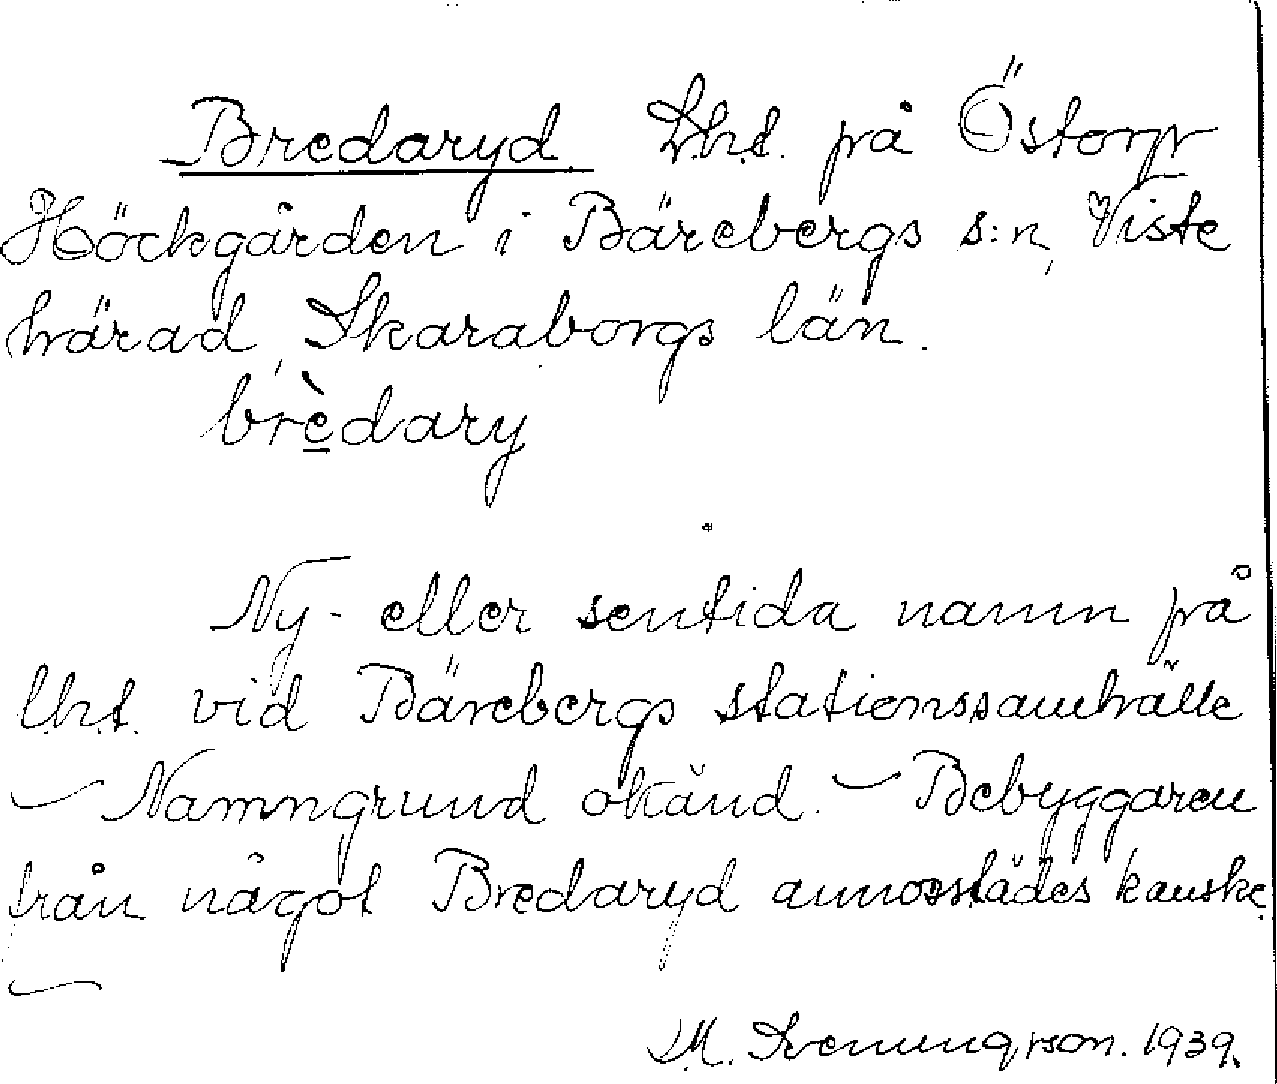 Bredaryd. Lht. på Östorp
Höckgården i Bärebergs s:n, Viste
härad, Skaraborgs län.
brèdary
Ny- eller sentida namn på
lht. vid Bärebergs stationssamhälle
– Namngrund okänd. – Bebyggaren
från något Bredaryd annorstädes kanske.
–
M. Svenungson. 1939.